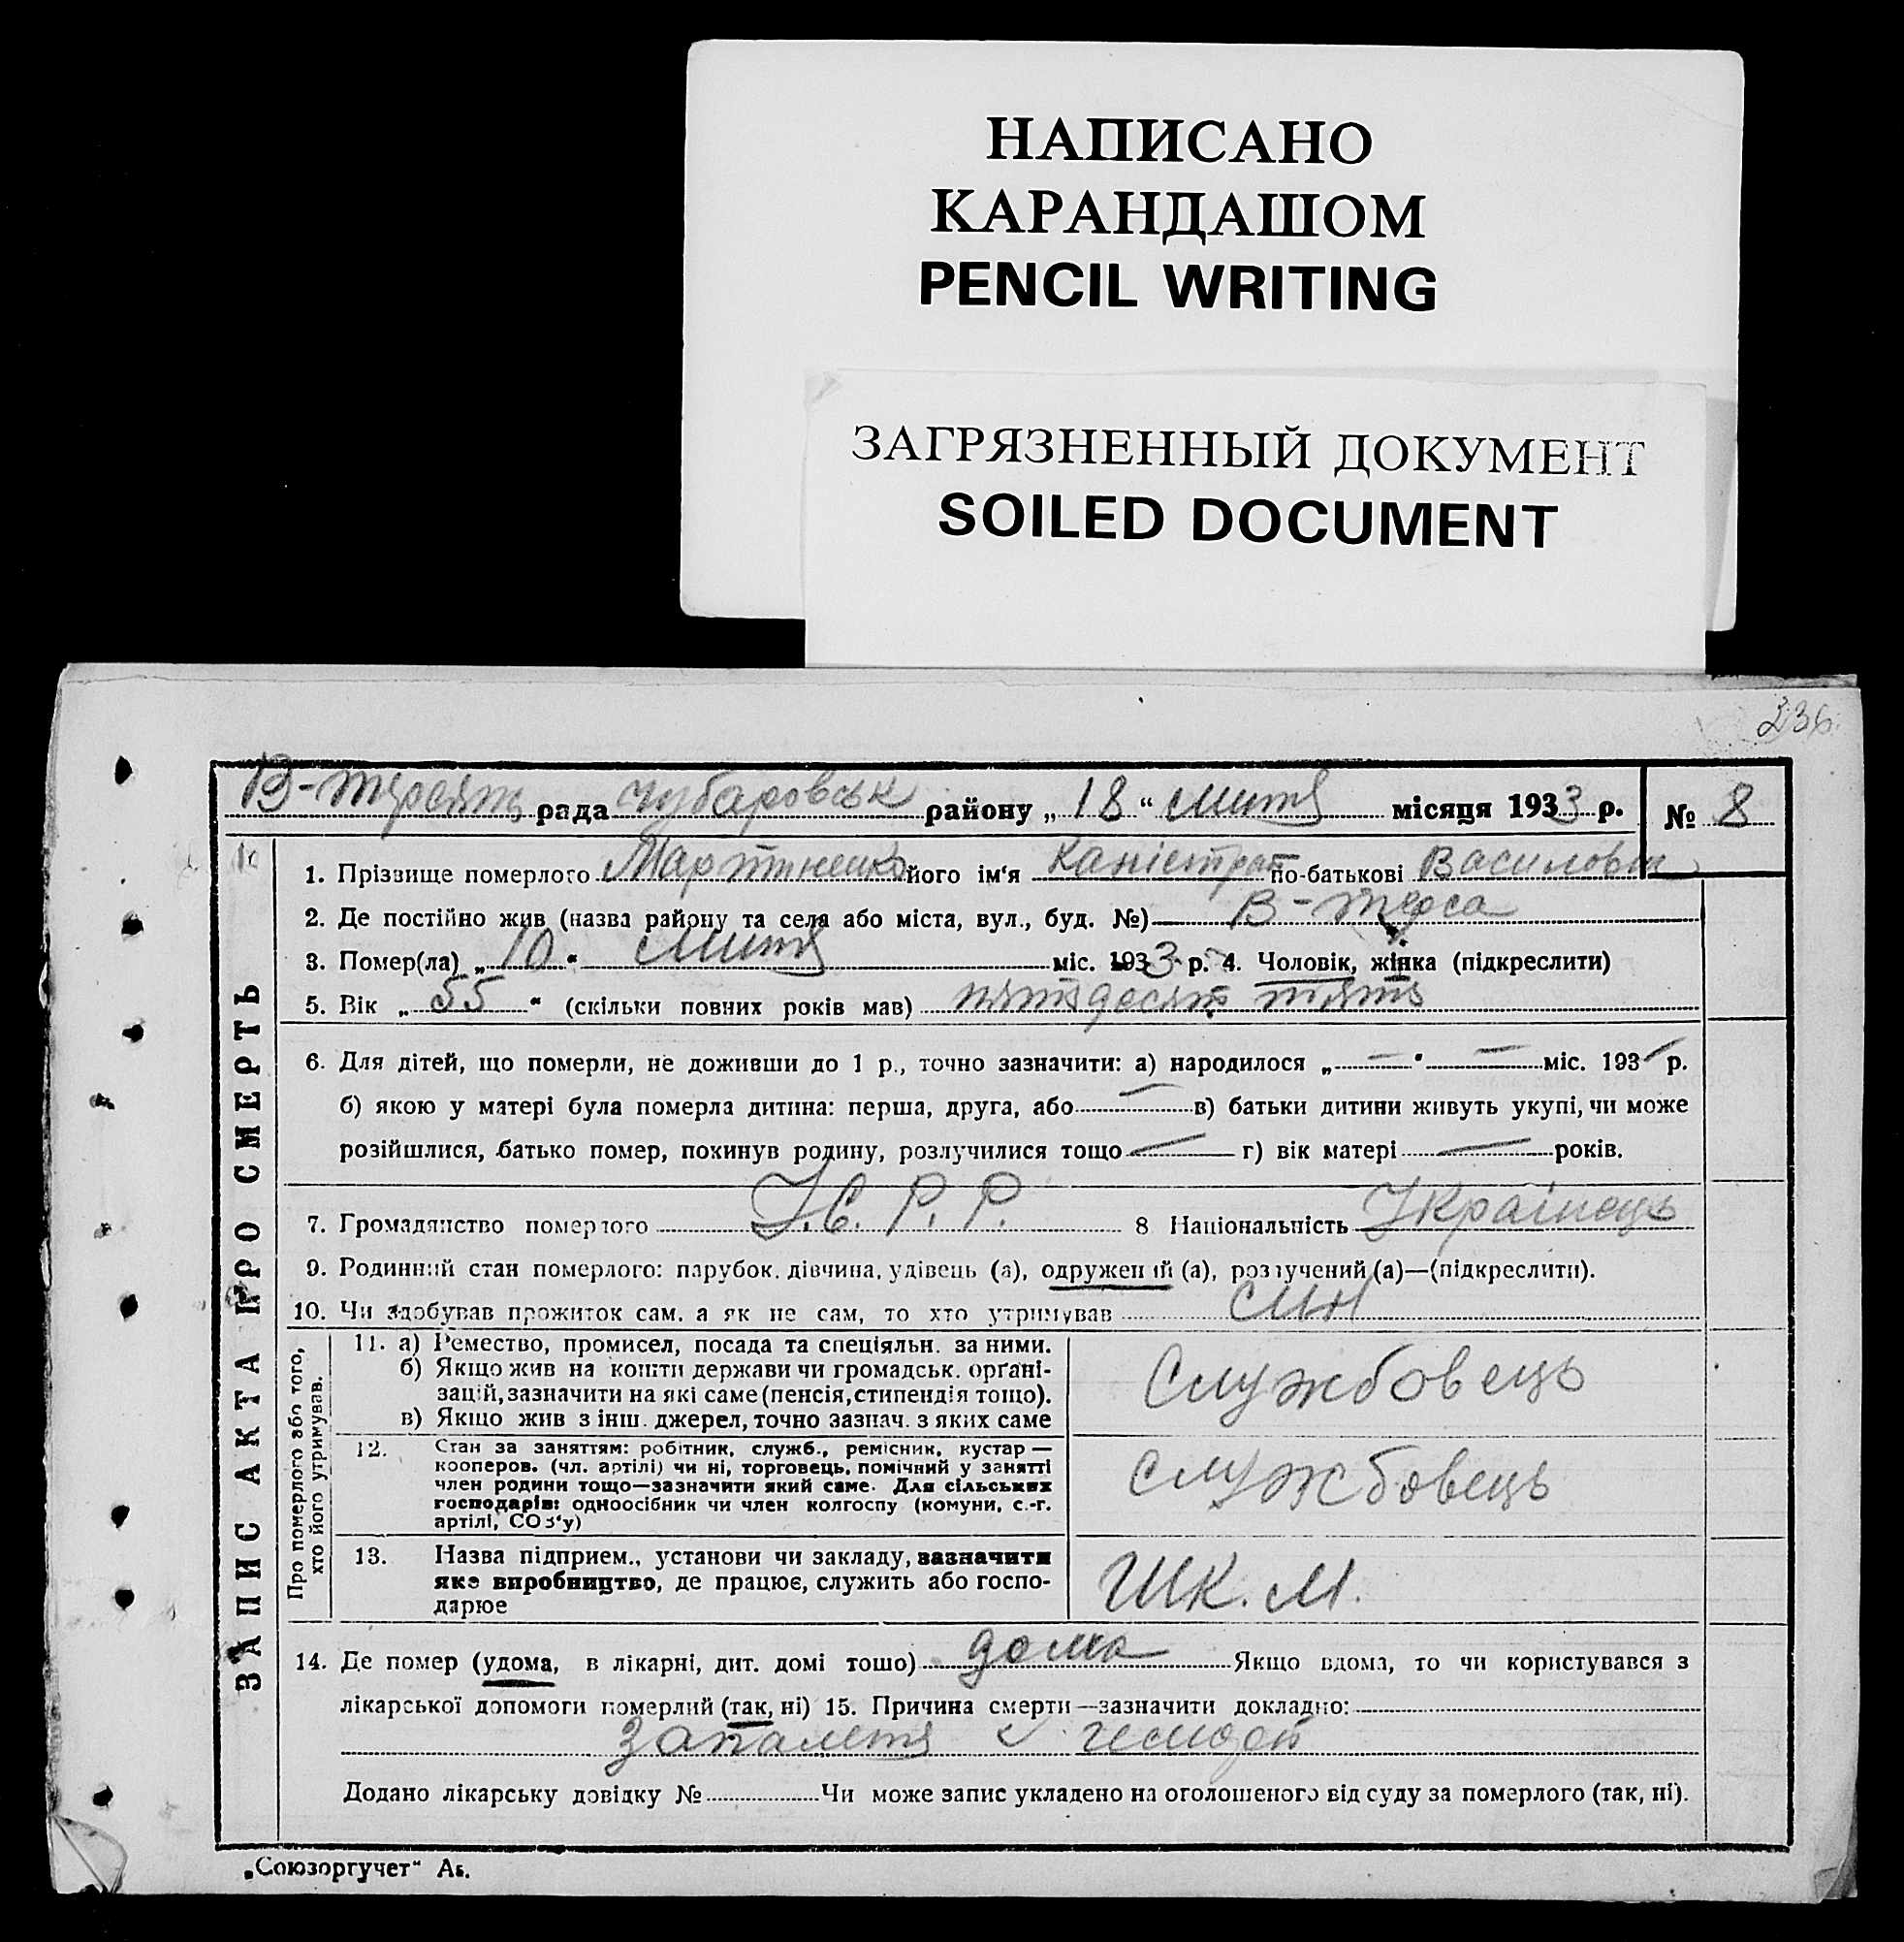 НАПИСАНО
КАРАНДАШОМ
PENCIL WRITING
ЗАГРЯЗНЕННЫЙ ДОКУМЕНТ
SOILED DOCUMENT
236
рада Чубаровськ району „ 18 “ місяця 1933 р. № 8
ЗАПИС АКТА ПРО СМЕРТЬ
1. Прізвище померлого Мартиненко його ім‘я по-батькові Василович
2. Де постійно жив (назва району та села або міста, вул., буд. №) В-Терса
3. Помер(ла) „ 10 “ міс. 1933 р. 4. Чоловік, жінка (підкреслити)
5. Вік „ 55 “ (скільки повних років мав) пятдесят пять
6. Для дітей, що померли, не доживши до 1 р., точно зазначити: а) народилося „ — “ — міс. 193— р.
б) якою у матері була померла дитина: перша, друга, або — в) батьки дитини живуть укупі, чи може
розійшлися, батько помер, покинув родину, розлучилися тощо — г) вік матері — років.
7. Громадянство померлого У.С.Р.Р. 8 Національність Українець
9. Родинний стан померлого: парубок, дівчина, удівець (а), одружений (а), розлучений (а)—(підкреслити).
10. Чи здобував прожиток сам, а як не сам, то хто утримував син
Про померлого або того,
хто його утримував.
11. а) Ремество, промисел, посада та спеціяльн. за ними.
б) Якщо жив на кошти держави чи громадськ. орґані-
зацій, зазначити на які саме (пенсія, стипендія тощо).
в) Якщо жив з інш. джерел, точно зазнач. з яких саме
Службовець
12. Стан за заняттям: робітник, служб., ремісник, кустар —
кооперов. (чл. артілі) чи ні, торговець, помічний у занятті
член родини тощо—зазначити який саме. Для сільських
господарів: одноосібник чи член колгоспу (комуни, с.-г.
артілі, СОЗ‘у)
Службовець
13. Назва підприєм., установи чи закладу, зазначити
яке виробництво, де працює, служить або госпо-
дарює
Шк. М.
14. Де помер (удома, в лікарні, дит. домі тощо) дома Якщо вдома, то чи користувався з
лікарської допомоги померлий (так, ні) 15. Причина смерти—зазначити докладно:
Додано лікарську довідку № Чи може запис укладено на оголошеного від суду за померлого (так, ні).
„Союзоргучет“